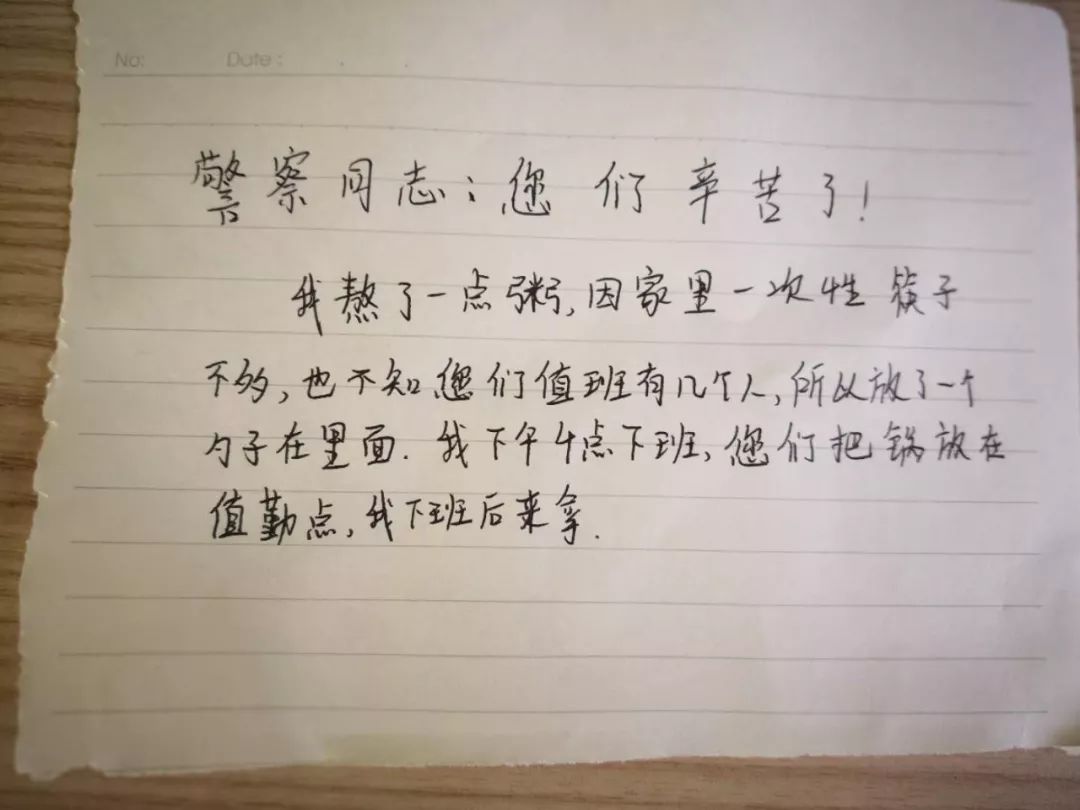 No: Date :
警察同志：您们辛苦了！
我熬了一点粥，因家里一次性筷子
不够，也不知您们值班有几个人，所以放了一个
勺子在里面．我下午4点下班，您们把锅放在
值勤点，我下班后来拿．